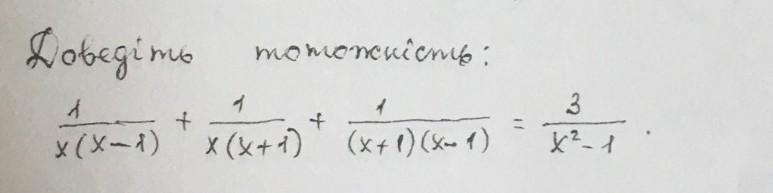 Доведіть тотожність:
1/(x(x-1)) + 1/(x(x+1)) + 1/((x+1)(x-1)) = 3/(x²-1).